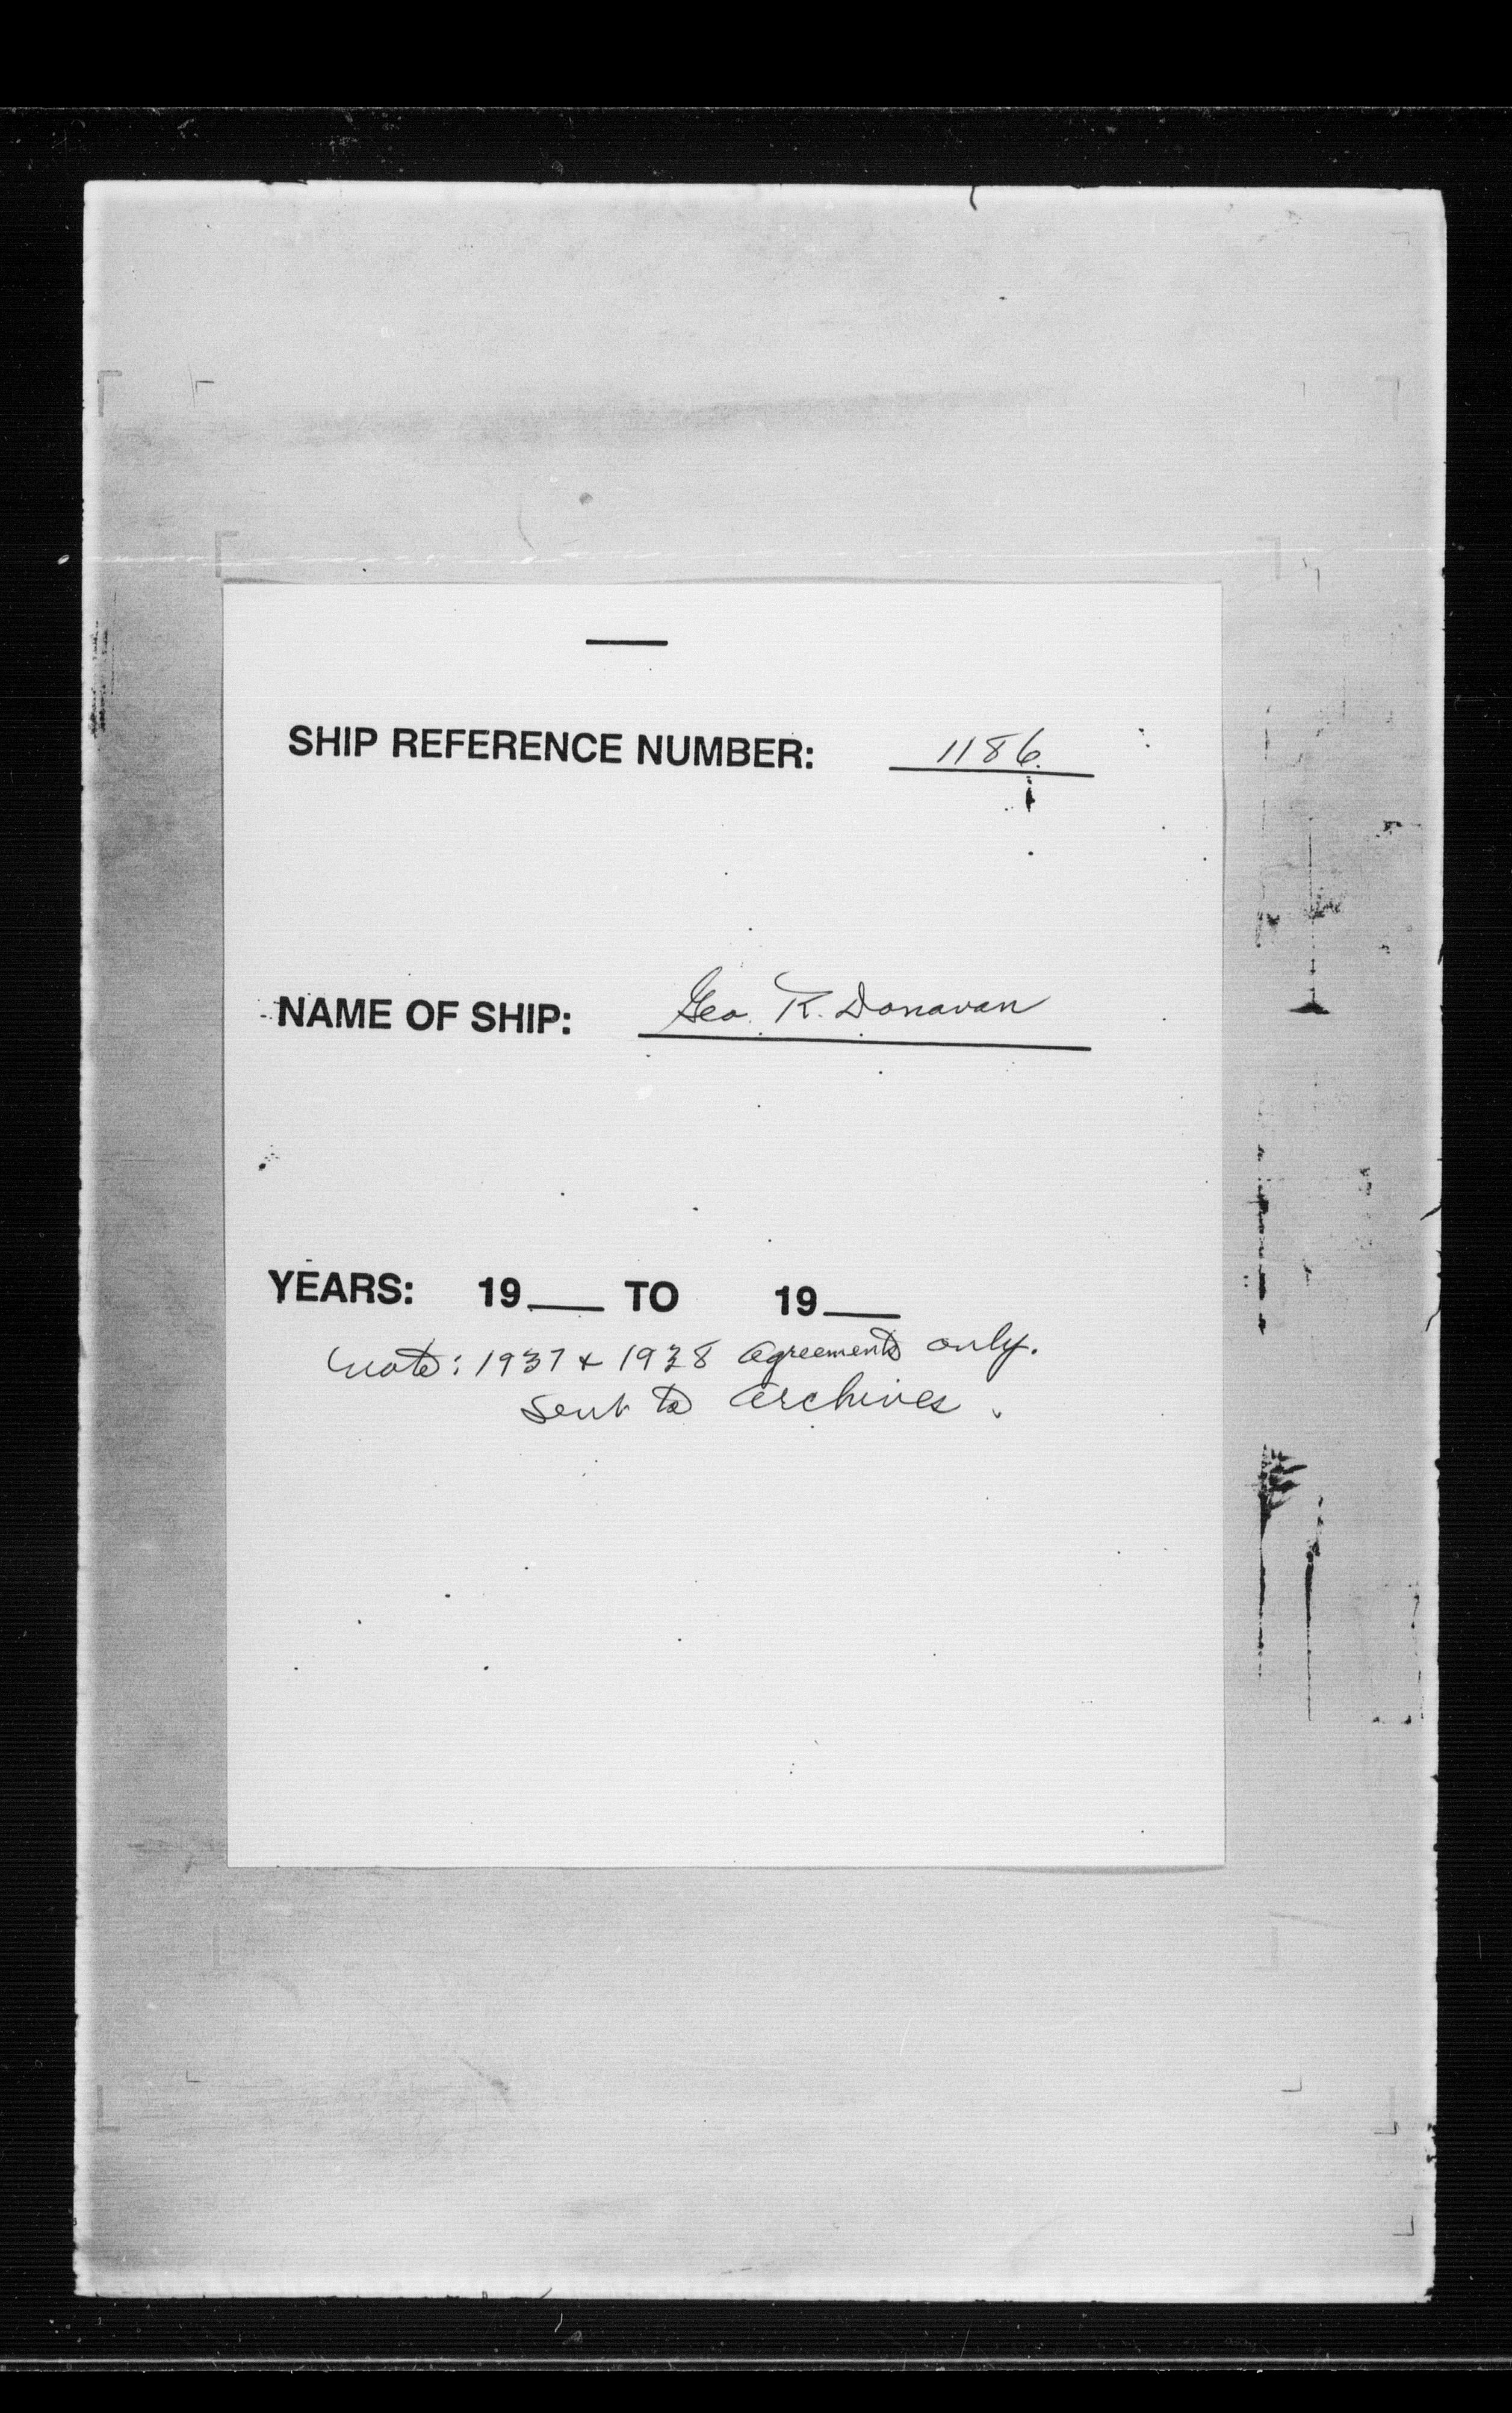 SHIP REFERENCE NUMBER: 1186.
NAME OF SHIP: Geo. R. Donavan
YEARS: 19___ TO 19___
Note: 1937 & 1938 agreements only.
Sent to archives.